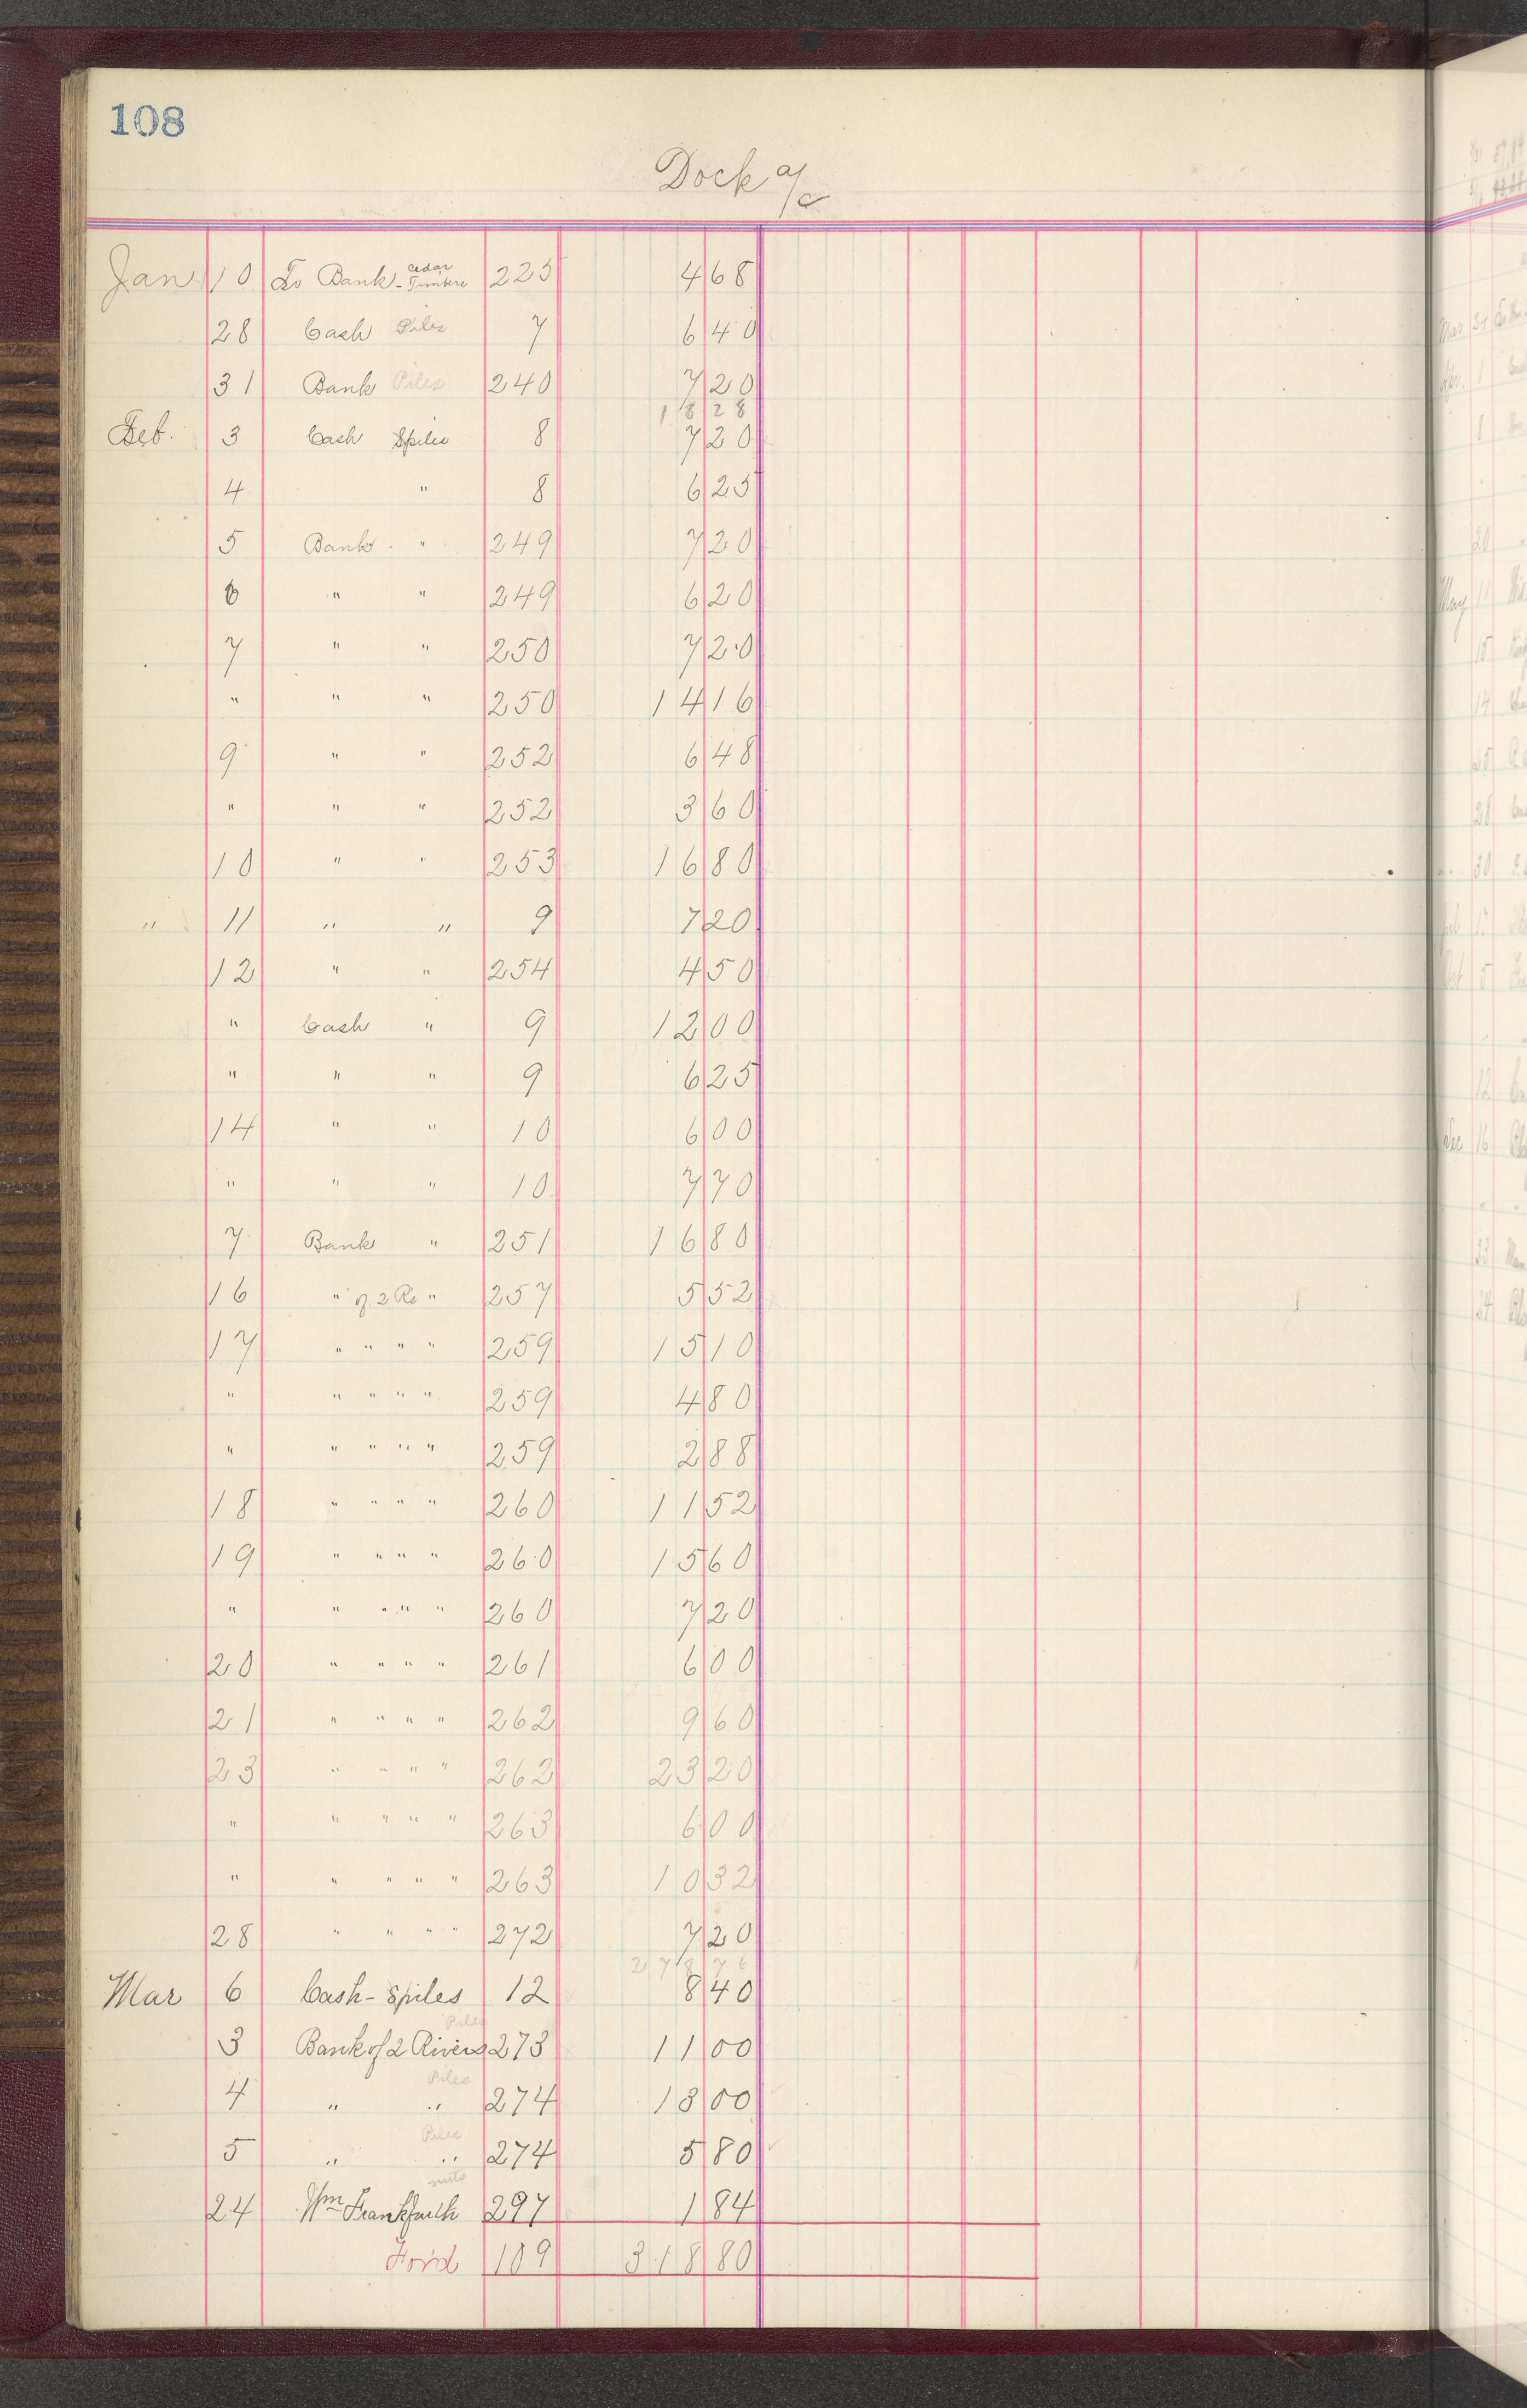 108
Dock a/c
Jan 10 To Bank - cedar Timbers 225 4 68
28 Cash Piles 7 6 40
31 Bank Piles 240 7 20
18 28
Feb. 3 Cash Spiles 8 7 20
4 " 8 6 25
5 Bank " 249 7 20
6 " " 249 6 20
7 " " 250 7 20
" " " 250 14 16
9 " " 252 6 48
" " " 252 3 60
10 " " 253 16 80
" 11 " " 9 7 20
12 " " 254 4 50
" Cash " 9 12 00
" " " 9 6 25
14 " " 10 6 00
" " " 10 7 70
7 Bank " 251 16 80
16 " of 2 Rs " 257 5 52
17 " " " " 259 15 10
" " " " " 259 4 80
" " " " " 259 2 88
18 " " " " 260 11 52
19 " " " " 260 15 60
" " " " " 260 7 20
20 " " " " 261 6 00
21 " " " " 262 9 60
23 " " " " 262 23 20
" " " " " 263 6 00
" " " " " 263 10 32
28 " " " " 272 7 20
278 76
Mar 6 Cash - Spiles 12 8 40
Piles
3 Bank of 2 Rivers 273 11 00
Piles
4 " " 274 13 00
Piles
5 " " 274 5 80
nuts
24 Wm Frankfurth 297 1 84
For'd 109 318 80